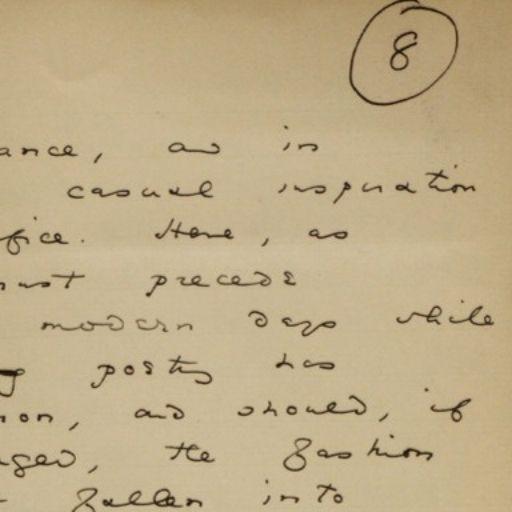 8
ance, as in
casual inspiration
fice. Here, as
must precede
modern days while
g poetry has
non, and should, if
aged, the fashion
fallen into